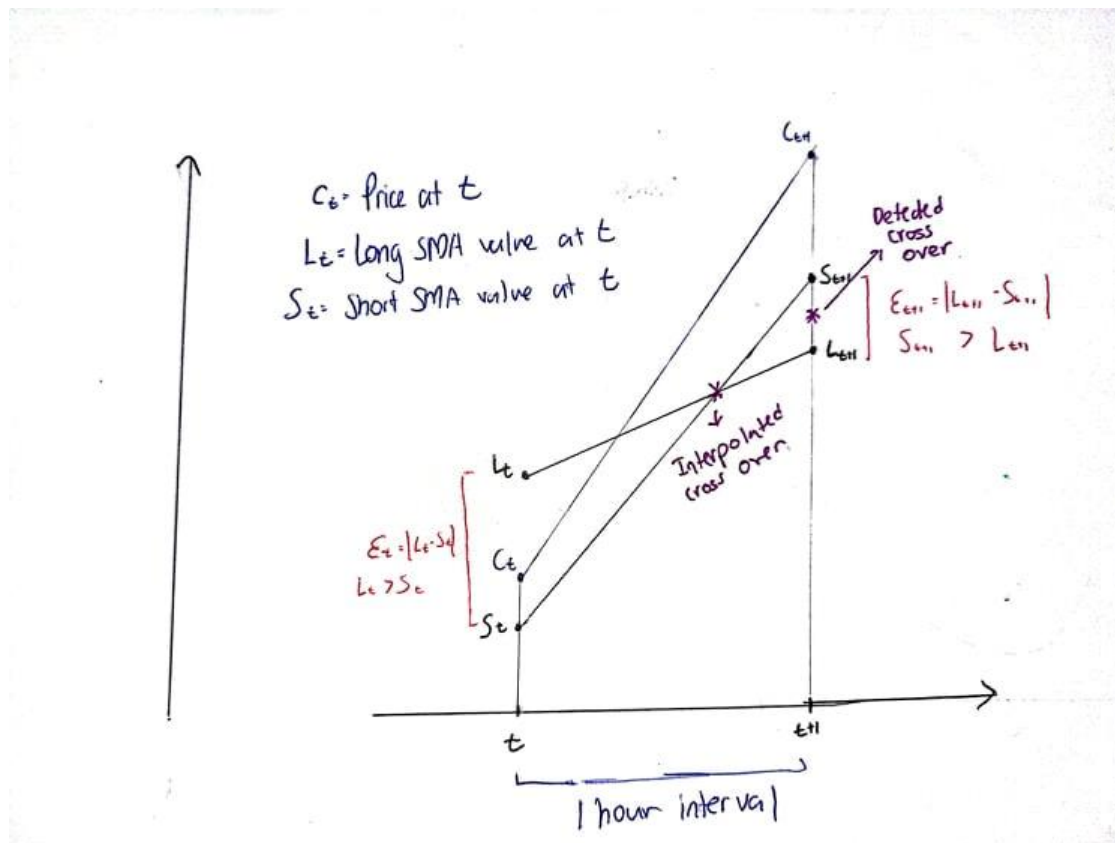 Cₜ= Price at t
Lₜ= Long SMA value at t
Sₜ= Short SMA value at t
Cₜ₊₁
Detected
cross
over
Sₜ₊₁
Eₜ₊₁=|Lₜ₊₁-Sₜ₊₁|
Sₜ₊₁ > Lₜ₊₁
Lₜ₊₁
Interpolated
cross over
Lₜ
Eₜ=|Lₜ-Sₜ|
Lₜ>Sₜ
Cₜ
Sₜ
t
t+1
1 hour interval